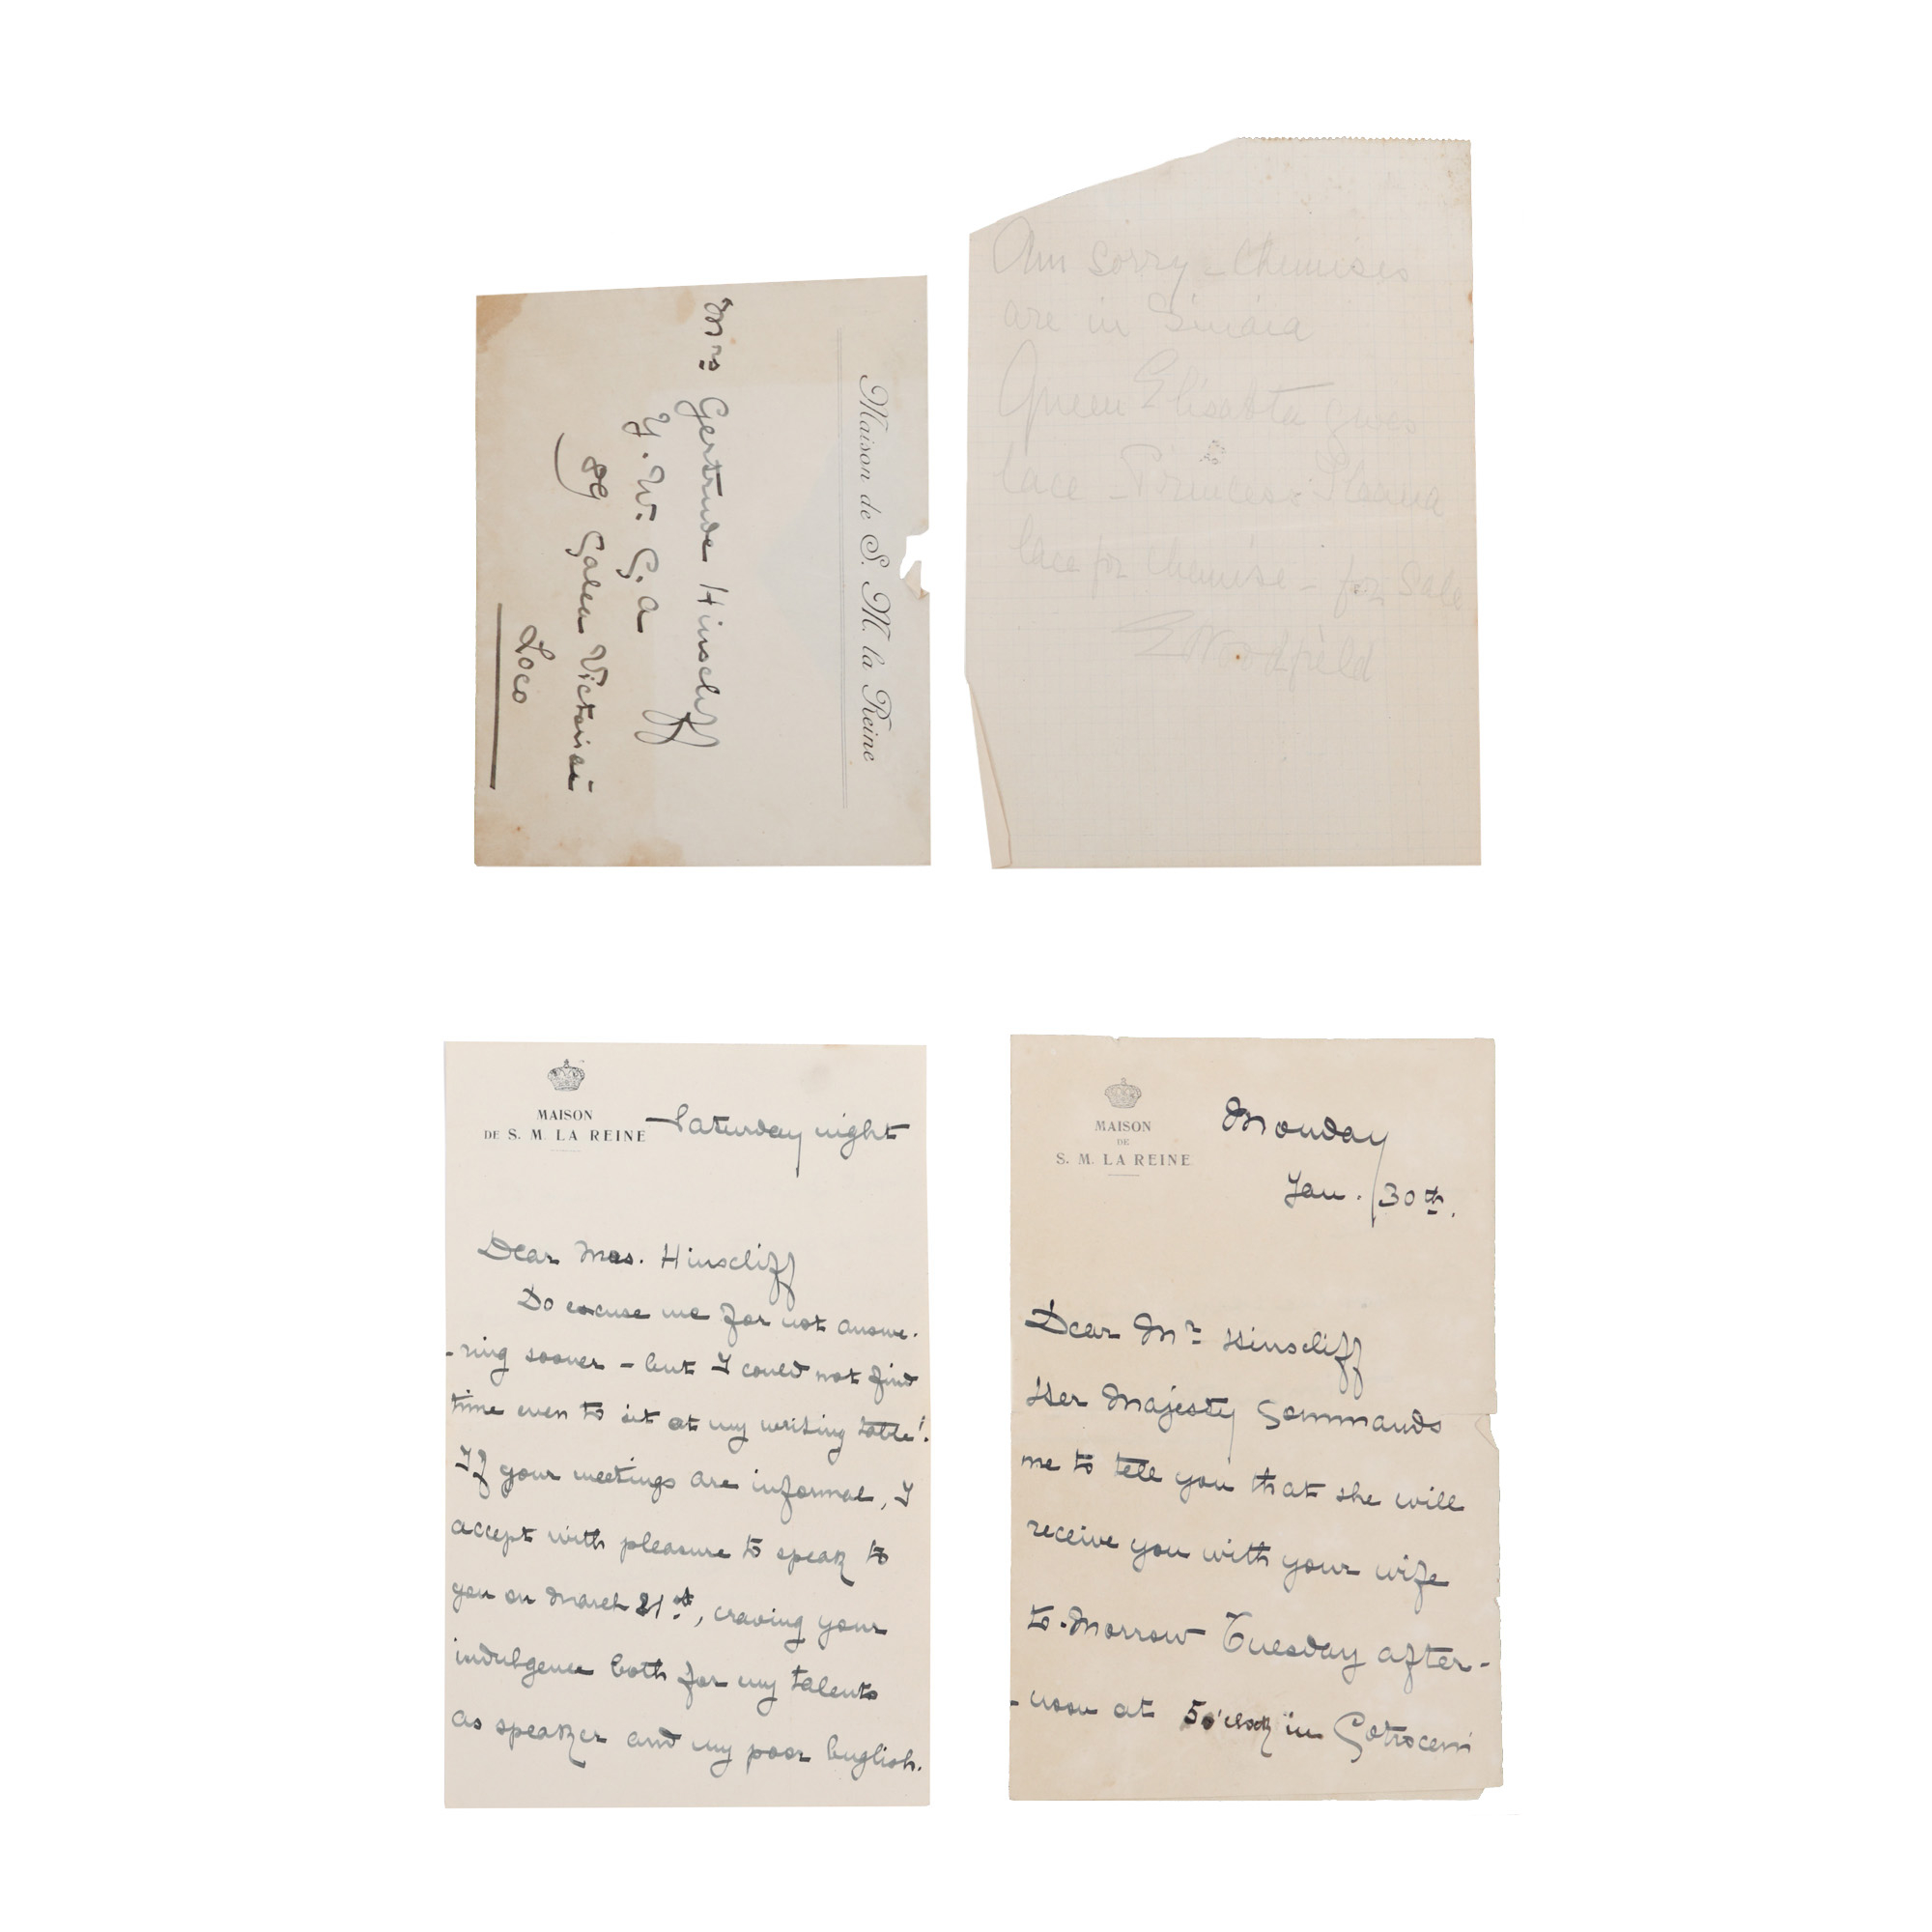 Maison de S. M. la Reine
Mrs Gertrude Hinscliff
Y. W. C. A
89 Calea Victoriei
Loco
Am sorry – Chemises
are in Sinaia
Queen Elisabeta gives
lace – Princess Ileana
lace for chemise – for Sale
E Woodfield
MAISON
DE S. M. LA REINE
Saturday night
Dear Mrs. Hinscliff
Do excuse me for not answe-
-ring sooner – but I could not find
time even to sit at my writing table!
If your meetings are informal, I
accept with pleasure to speak to
you on March 21st, craving your
indulgence both for my talents
as speaker and my poor English.
MAISON
DE
S. M. LA REINE
Monday
Jan. 30th.
Dear Mr Hinscliff
Her Majesty Commands
me to tell you that she will
receive you with your wife
to-Morrow Tuesday after-
-noon at 5 o'clock in Cotroceni